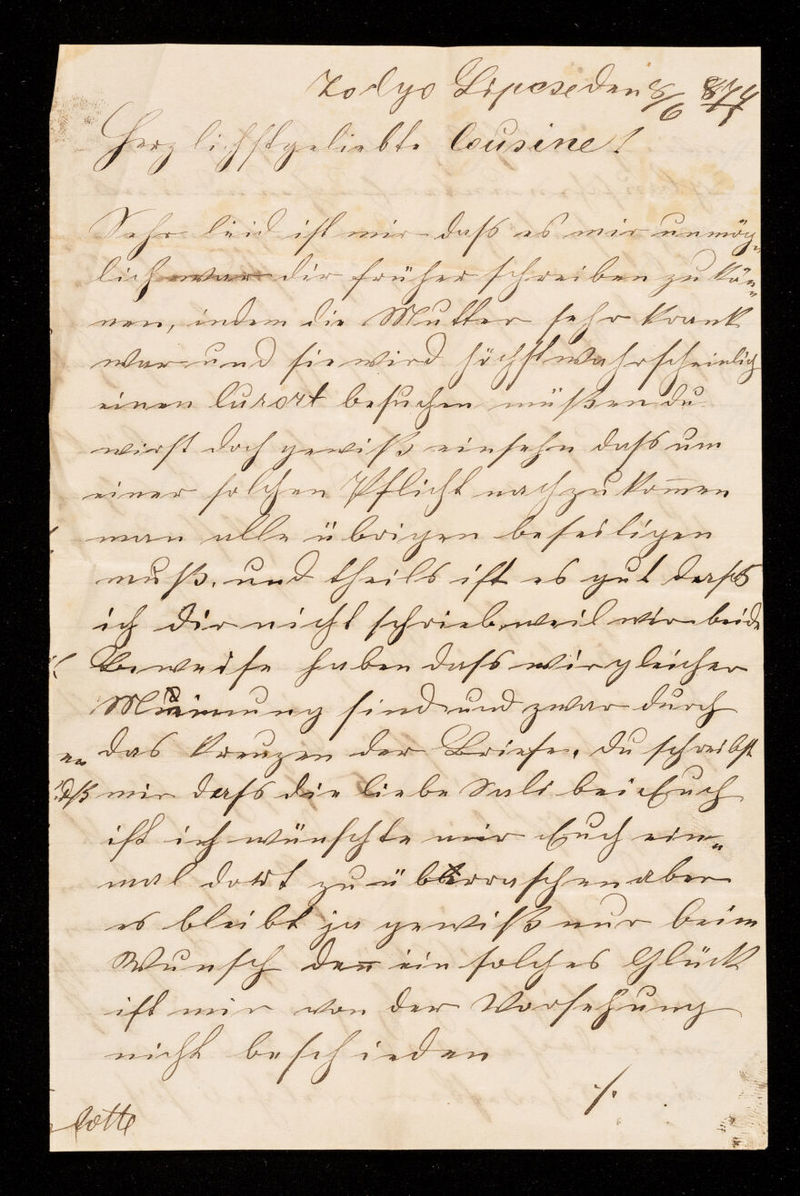 Zolyo Lipcse den 8/6 874
Herzlichstgeliebte Cousine!
Sehr leid ist mir dass es mir unmög„
lich war dir früher schreiben zu kön„
nen, indem die Mutter sehr krank
war und sie wird höchstwahrscheinlich
einen Curort besuchen müßen du
wirst doch gewiß einsehn dass um
einer solchen Pflicht nachzukom̅en
man alle übrigen beseitigen
muß, und theils ist es gut dass
ich dir nicht schrieb, weil wir beide
Beweise haben dass wir gleicher
Meinung sind und zwar durch
das kreuzen der Briefe. du schreibst
mir dass die liebe Sali bei Euch
ist ich wünschte mir Euch ein„
mal dort zu überraschen aber
es bleibt ja gewiß nur beim
Wunsch den̅ ein solches Glück
ist mir von der Vorsehung
nicht beschieden
./.